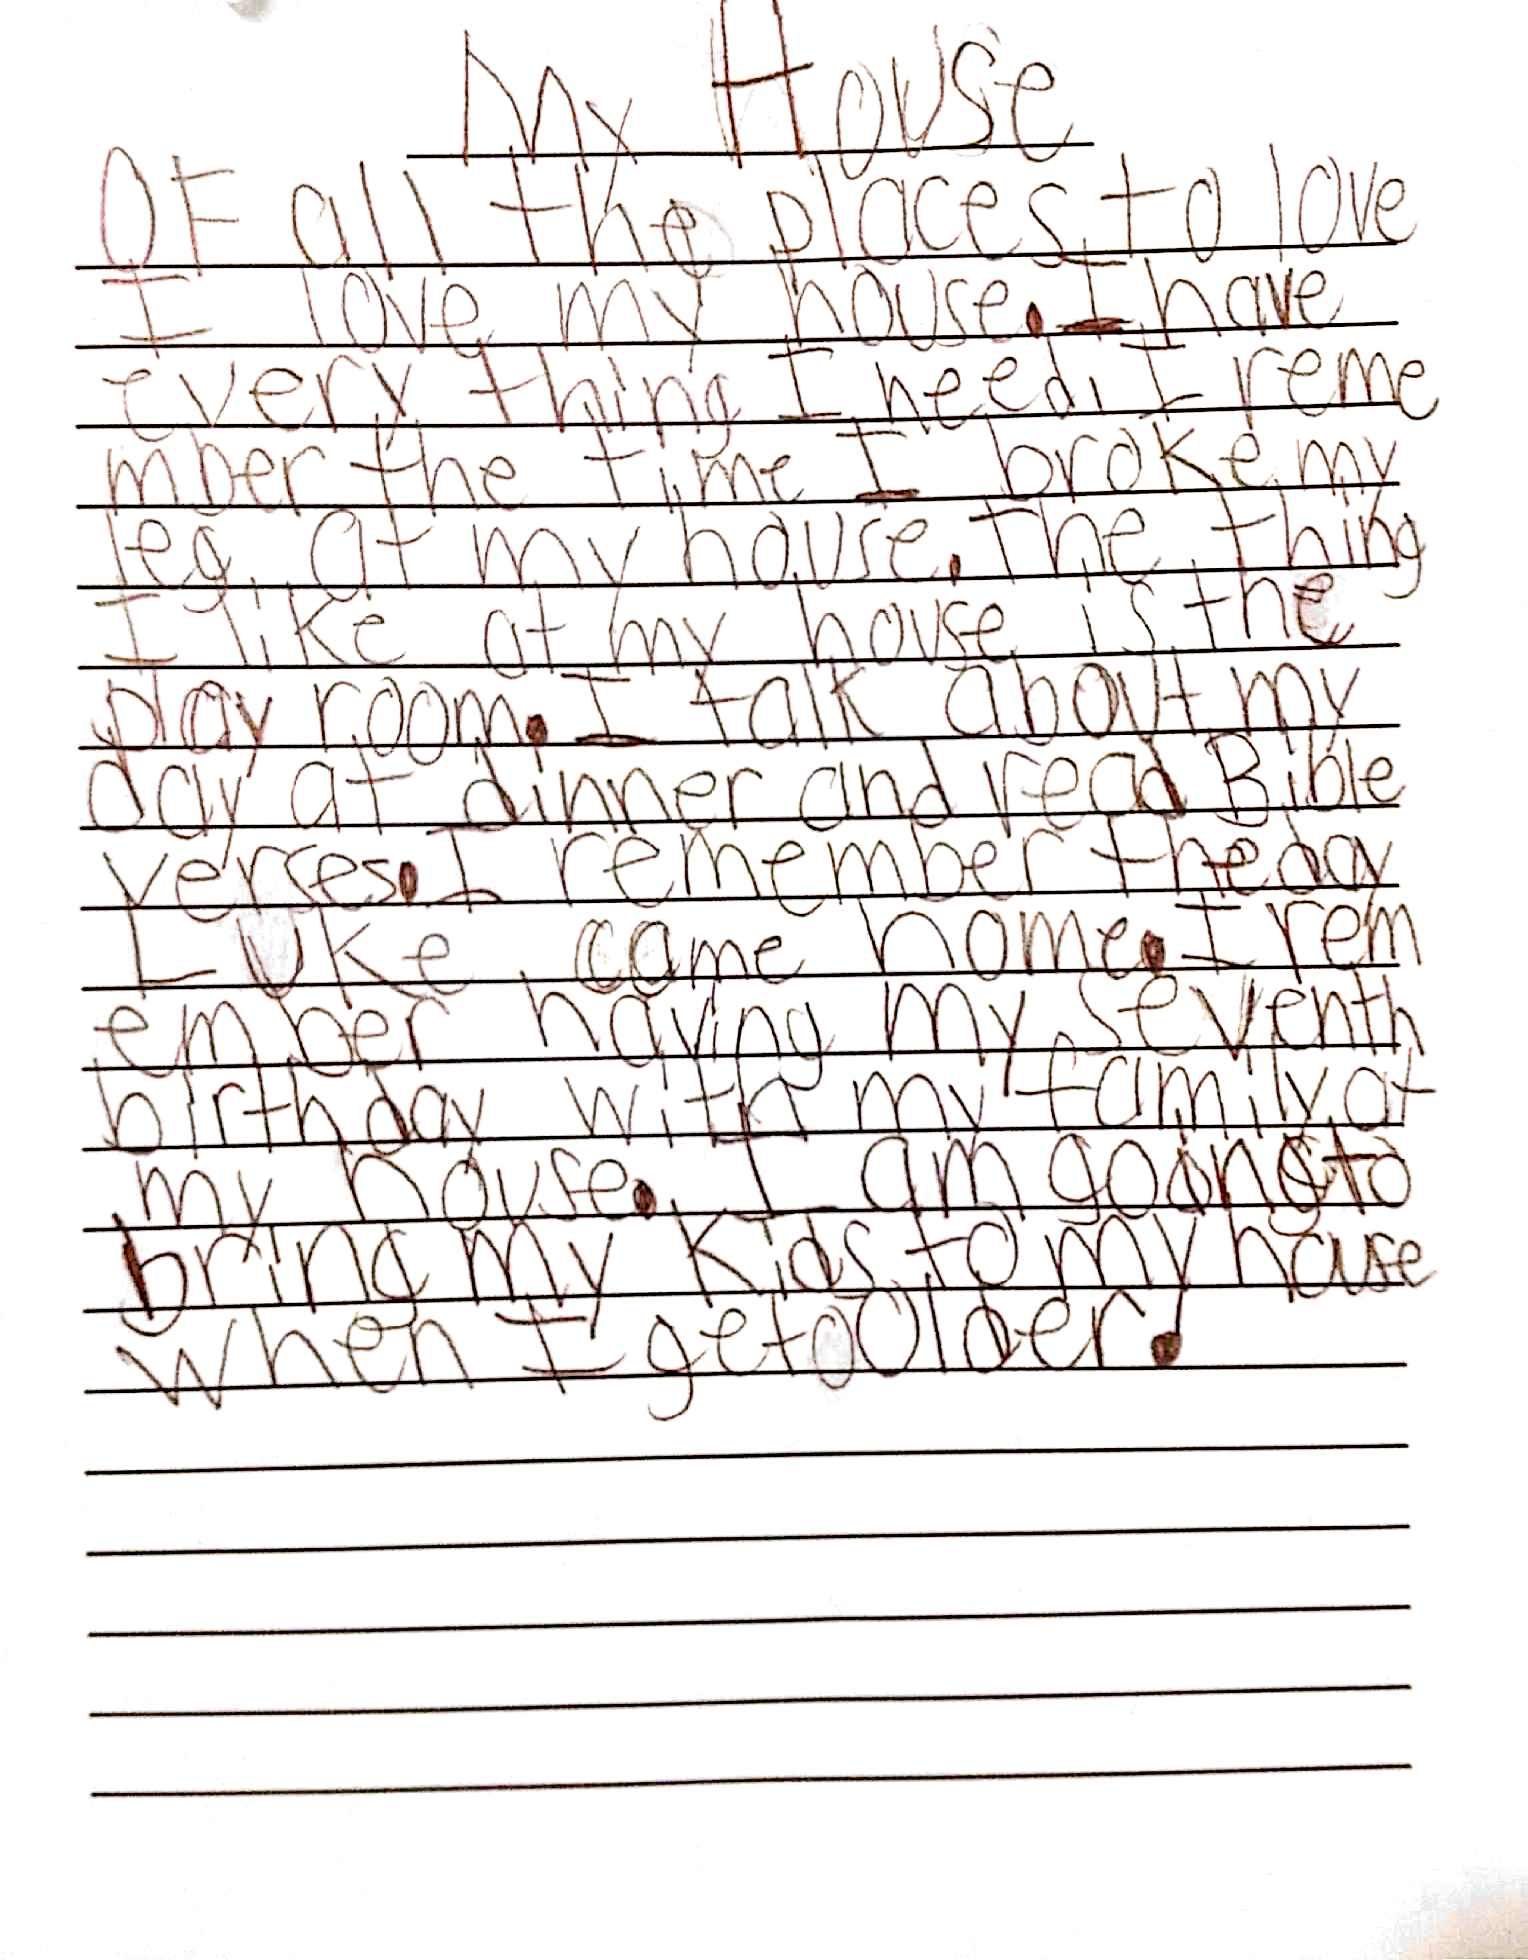 My House
OF all the places to love
I love my house. I have
every thing I need. I reme
mber the time I broke my
leg at my house. The thing
I like at my house is the
play room. I talk about my
day at dinner and read Bible
verses. I remember the day
Luke came home. I rem
ember having my seventh
birthday with my family at
my house. I am going to
bring my kids to my house
when I get older.